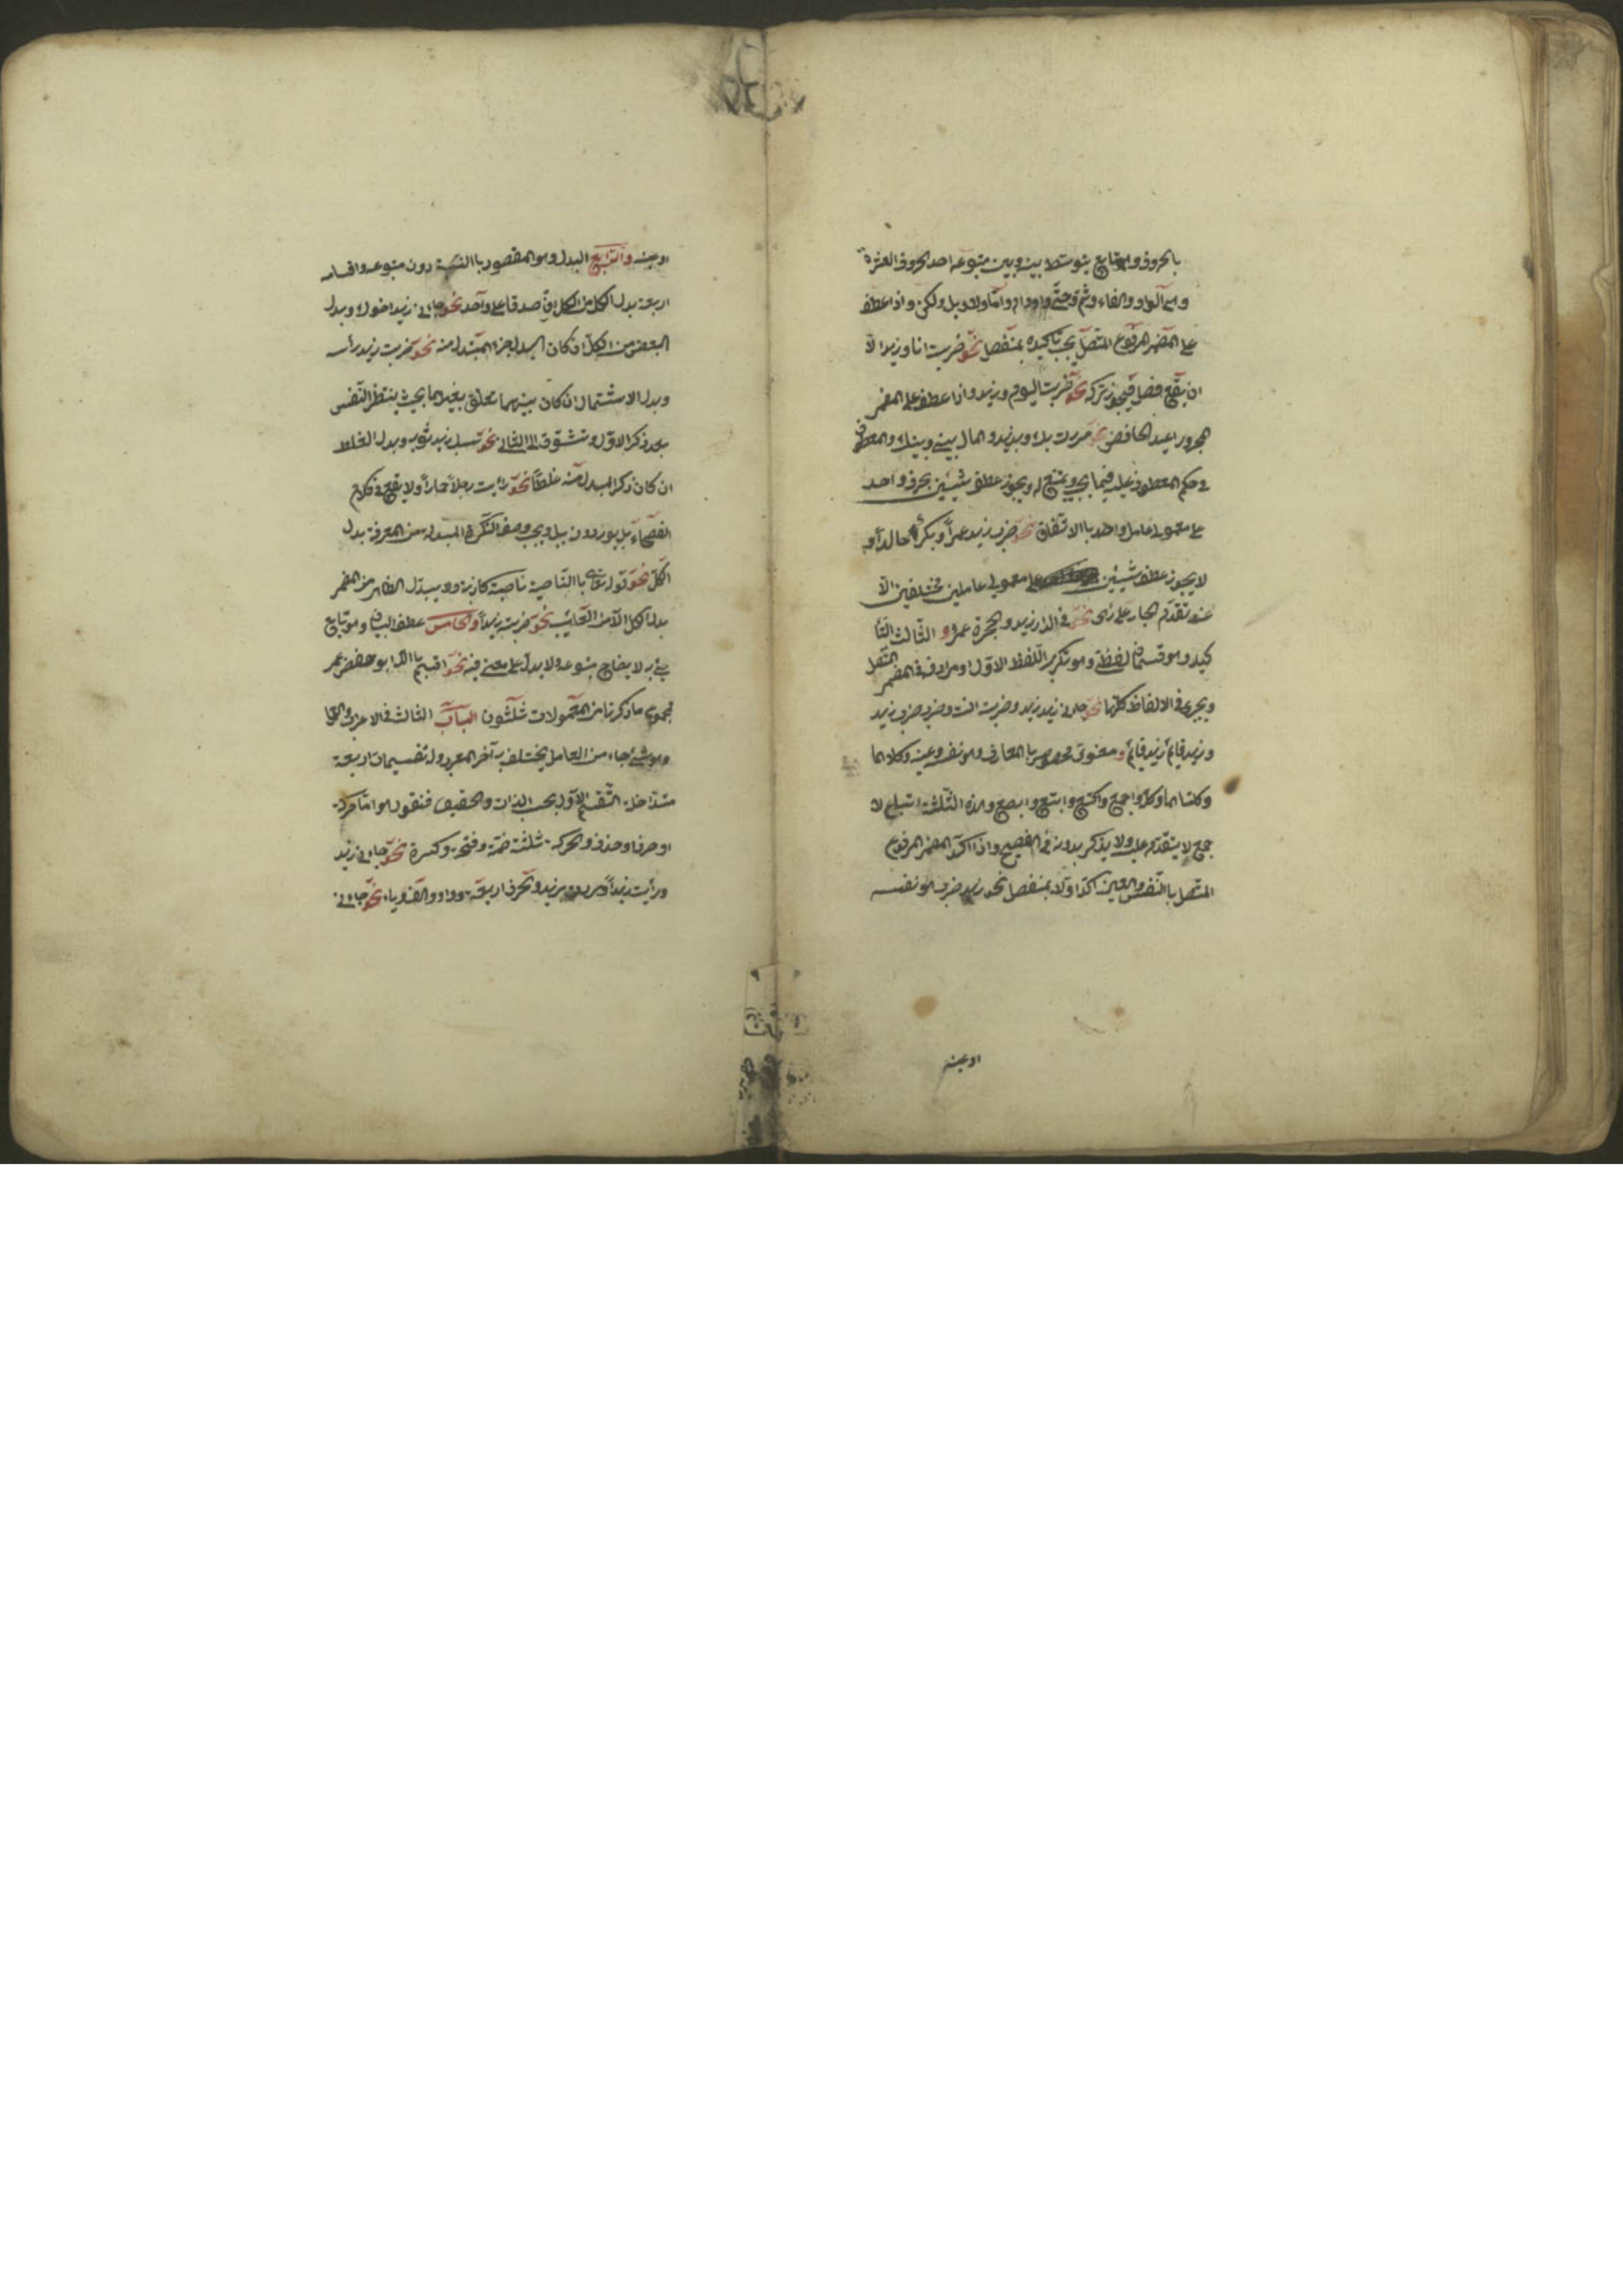 بالحروف وهو تابع يتوسط بينه وبين متبوعه احد الحروف العشرة
وهي آلواو والفاء وثم وحتّى واو وام وامّا ولا وبل ولكن واذا عطف
على المضمر المرفوع المتصل يجب تأكيده بمنفصل نحو ضربت انا وزيد الّا
ان يقع فصل فيجوز تركه نحو ضربت اليوم وزيد واذا عطف على المضمر
المجرور اعيد الخافض نحو مررت بك وبزيد والمال بيني وبينك والمعطوف
في حكم المعطوف عليه فيما يجب ويمتنع له ويجوز عطف شيئين بحرف واحد
على معمولي عامل واحد باالاتّفاق نحو ضرب زيد عمراً وبكر خالداً و
لا يجوز عطف شيئين على معمولي عاملين مختلفين الّا
عند تقدّم الجار على رأى نحو في الدّار زيد والحجرة عمرو و الثّالث التّأ
كيد وهو قسمان لفظيّ وهو تكرير اللّفظ الاوّل او مرادفه في المضمر المتّصل
ويجرى في الالفاظ كلّها نحو جاءني زيد زيد وضربت انت وضرب ضرب زيد
وزيد قائم زيد قائم و معنوىّ مخصوص باالمعارف وهو نفسه وعينه وكلاهما
وكلتاهما وكلّه واجمع واكتع وابتع وابصع وهذه الثّلثة اتباع لا
جمع لا يتقدّم عليه ولا يذكر بدونه في الفصيح واذا اكّد المضمر المرفوع
المتّصل باالنّفس والعين اكّد اوّلا بمنفصل نحو زيد ضرب هو نفسه
او عينه
او عينه والرّابع البدل وهو المقصود باالنسبة دون متبوعه واقسامه
اربعة بدل الكل من الكل ان صدقا على واحد نحو جاءني زيد اخوك وبدل
البعض من الكلّ ان كان البدل جزء المبدل منه نحو ضربت زيد رأسه
وبدل الاشتمال ان كان بينهما تعلّق بغيرهما بحيث ينتظر النّفس
بعد ذكر الاوّل وتشوّق الى الثاني نحو سلب زيد ثوبه وبدل الغلط
ان كان ذكر المبدل منه غلطاً نحو رأيت رجلاً حماراً ولا يقع في كلام
الفصحاء بل يوردون ببل ويجب وصف النّكرة المبدلة من المعرفة بدل
الكلّ نحو قوله تعالى باالنّاصية ناصية كاذبة ولا يبدل الظاهر من المضمر
بدل الكل الّا من الغائب نحو ضربته زيداً والخامس عطف البيان وهو تابع
يجيء به لايضاح متبوعه ولا يدلّ على معنى فيه نحو اقسم باالله ابو حفص عمر
فمجموع ما ذكرنا من المعمولات ثلثون الباب الثالث في الاعراب
وهو شئ جاء من العامل يختلف به آخر المعرب وله تقسيمات اربعة
متداخلة التّقسيم الاوّل بحسب الذات والحقيقة فنقول هو امّا حركة
او حرف او حذف والحركة ثلثة ضمّة وفتحة وكسرة نحو جاءني زيد
ورأيت زيداً ومررت بزيد والحرف اربعة واو والف وياء نحو جاءني